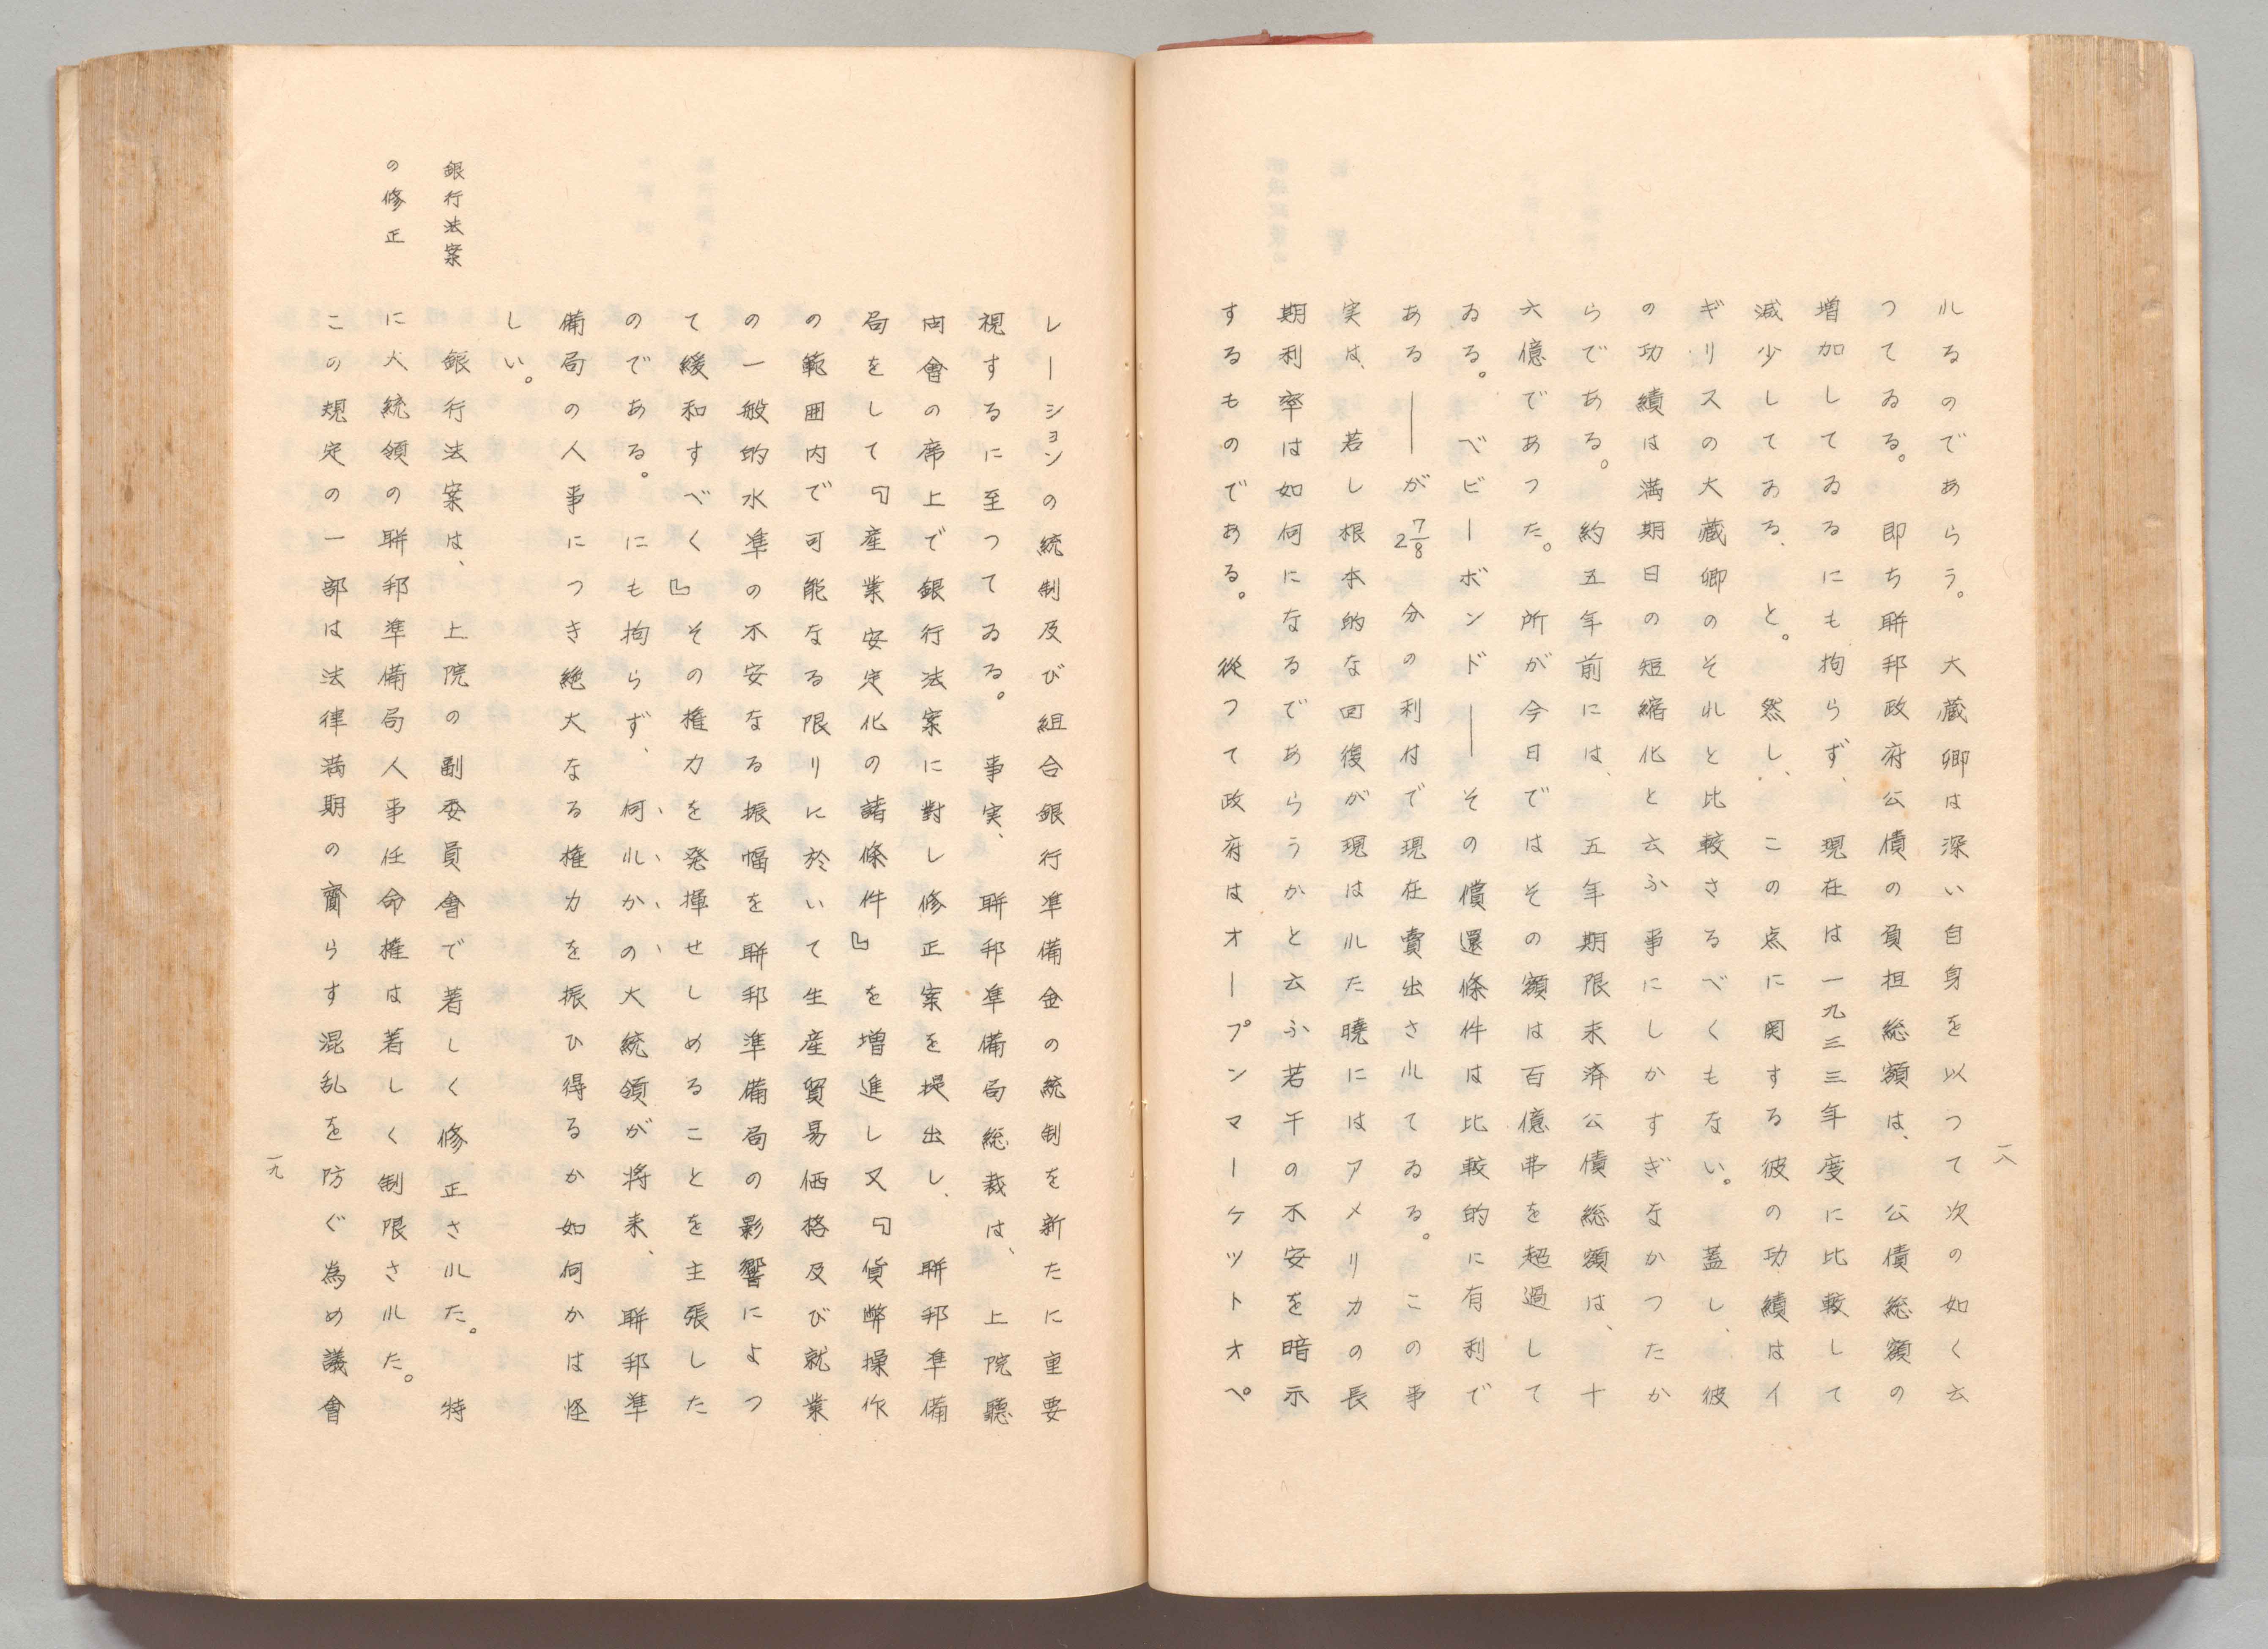 ルるのであらう。　大蔵卿は深い自身を以つて次の如く云
つてゐる。　即ち聯邦政府公債の負担総額は、　公債総額の
増加してゐるにも拘らず、　現在は一九三三年度に比較して
減少してゐる、と。　然し、　この点に関する彼の功績はイ
ギリスの大蔵卿のそれと比較さるべくもない。　蓋し、彼
の功績は満期日の短縮化と云ふ事にしかすぎなかつたか
らである。　約五年前には、　五年期限未済公債総額は、　十
六億であつた。　所が今日ではその額は百億弗を超過して
ゐる。　ベビーボンド――その償還條件は比較的に有利で
ある――が2⅞分の利付で現在賣出されてゐる。　この事
実は、　若し根本的な回復が現はれた曉にはアメリカの長
期利率は如何になるであらうかと云ふ若干の不安を暗示
するものである。　從つて政府はオープンマーケツトオペ
一八
レーションの統制及び組合銀行準備金の統制を新たに重要
視するに至つてゐる。　事実、　聯邦準備局総裁は、　上院聽
問會の席上で銀行法案に對し修正案を提出し、　聯邦準備
局をして『産業安定化の諸條件』を増進し又『貨幣操作
の範囲内で可能なる限りに於いて生産貿易価格及び就業
の一般的水準の不安なる振幅を聯邦準備局の影響によつ
て緩和すべく』その権力を発揮せしめることを主張した
のである。　にも拘らず、　何れかの大統領が将来、　聯邦準
備局の人事につき絶大なる権力を振ひ得るか如何かは怪
しい。
銀行法案
の修正
銀行法案は、　上院の副委員會で著しく修正された。　特
に大統領の聯邦準備局人事任命権は著しく制限された。
この規定の一部は法律満期の齎らす混乱を防ぐ為め議會
一九